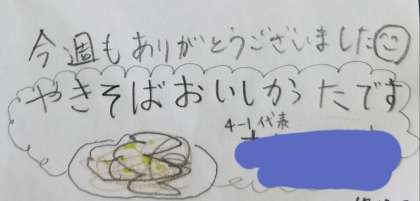 今週もありがとうございました
やきそばおいしかったです
4-1代表